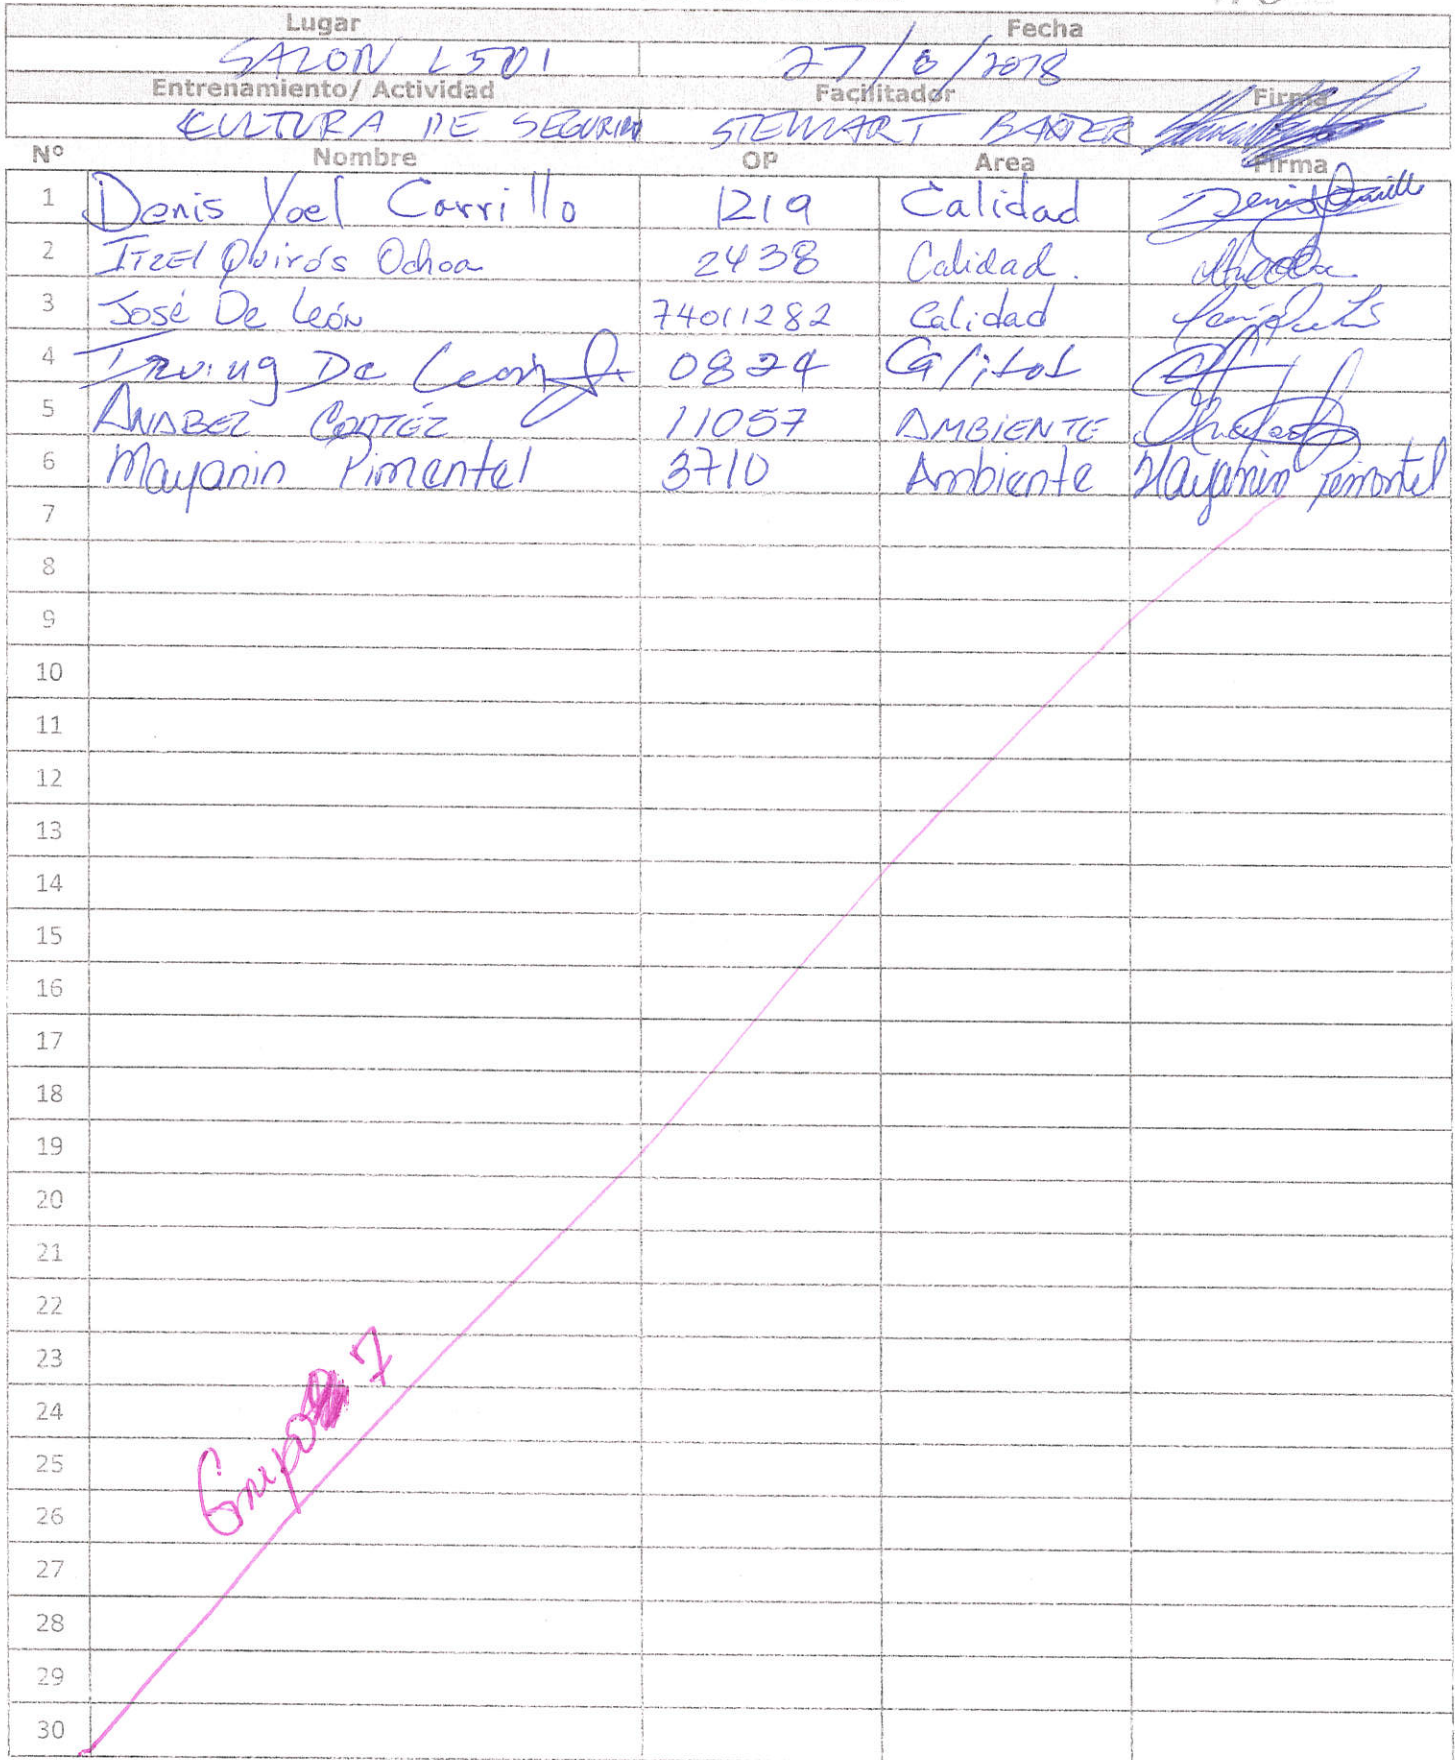 Lugar Fecha
SALON L501 27/6/2018
Entrenamiento/ Actividad Facilitador Firma
CULTURA DE SEGURIDAD STEWART BAXTER
Nº Nombre OP Area Firma
1 Denis Yoel Carrillo 1219 Calidad Denis Carrillo
2 ITZEl Quirós Ochoa 2438 Calidad.
3 José De León 74011282 Calidad
4 Irving De Leon 0824 Calidad
5 ANABEL CORTÉZ 11057 AMBIENTE
6 Mayanin Pimentel 3710 Ambiente Mayanin Pimentel
7
8
9
10
11
12
13
14
15
16
17
18
19
20
21
22
23
24
Grupo 7
25
26
27
28
29
30